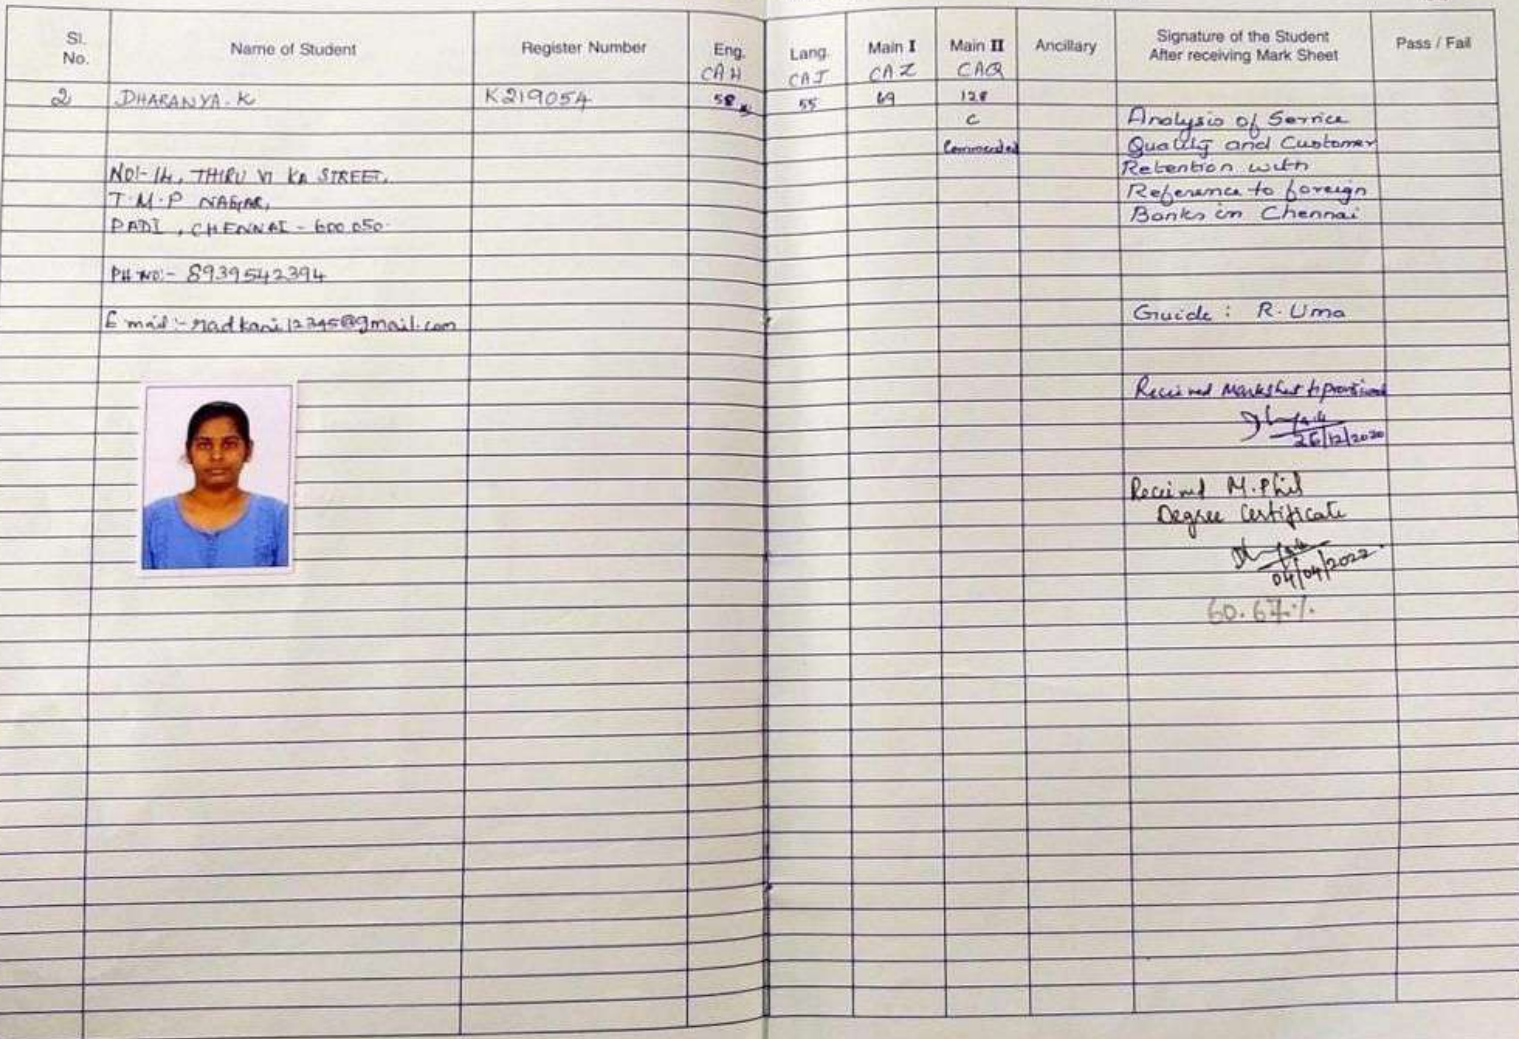 Sl. No. Name of Student Register Number Eng. Lang. Main I Main II Ancillary Signature of the Student After receiving Mark Sheet Pass / Fail
CAH CAI CAZ CAQ
2 DHARANYA.K K219054 58 55 69 128
C
Commended
Analysis of Service
Quality and Customer
Retention with
Reference to foreign
Banks in Chennai
NO:-14, THIRU VI KA STREET,
T.M.P NAGAR,
PADI, CHENNAI - 600 050.
PH NO:- 8939542394
E mail :- radkani12345@gmail.com
Guide : R. Uma
Received Marksheet & provisional
26/12/2020
Received M.Phil
Degree Certificate
04/04/2022.
60.67%